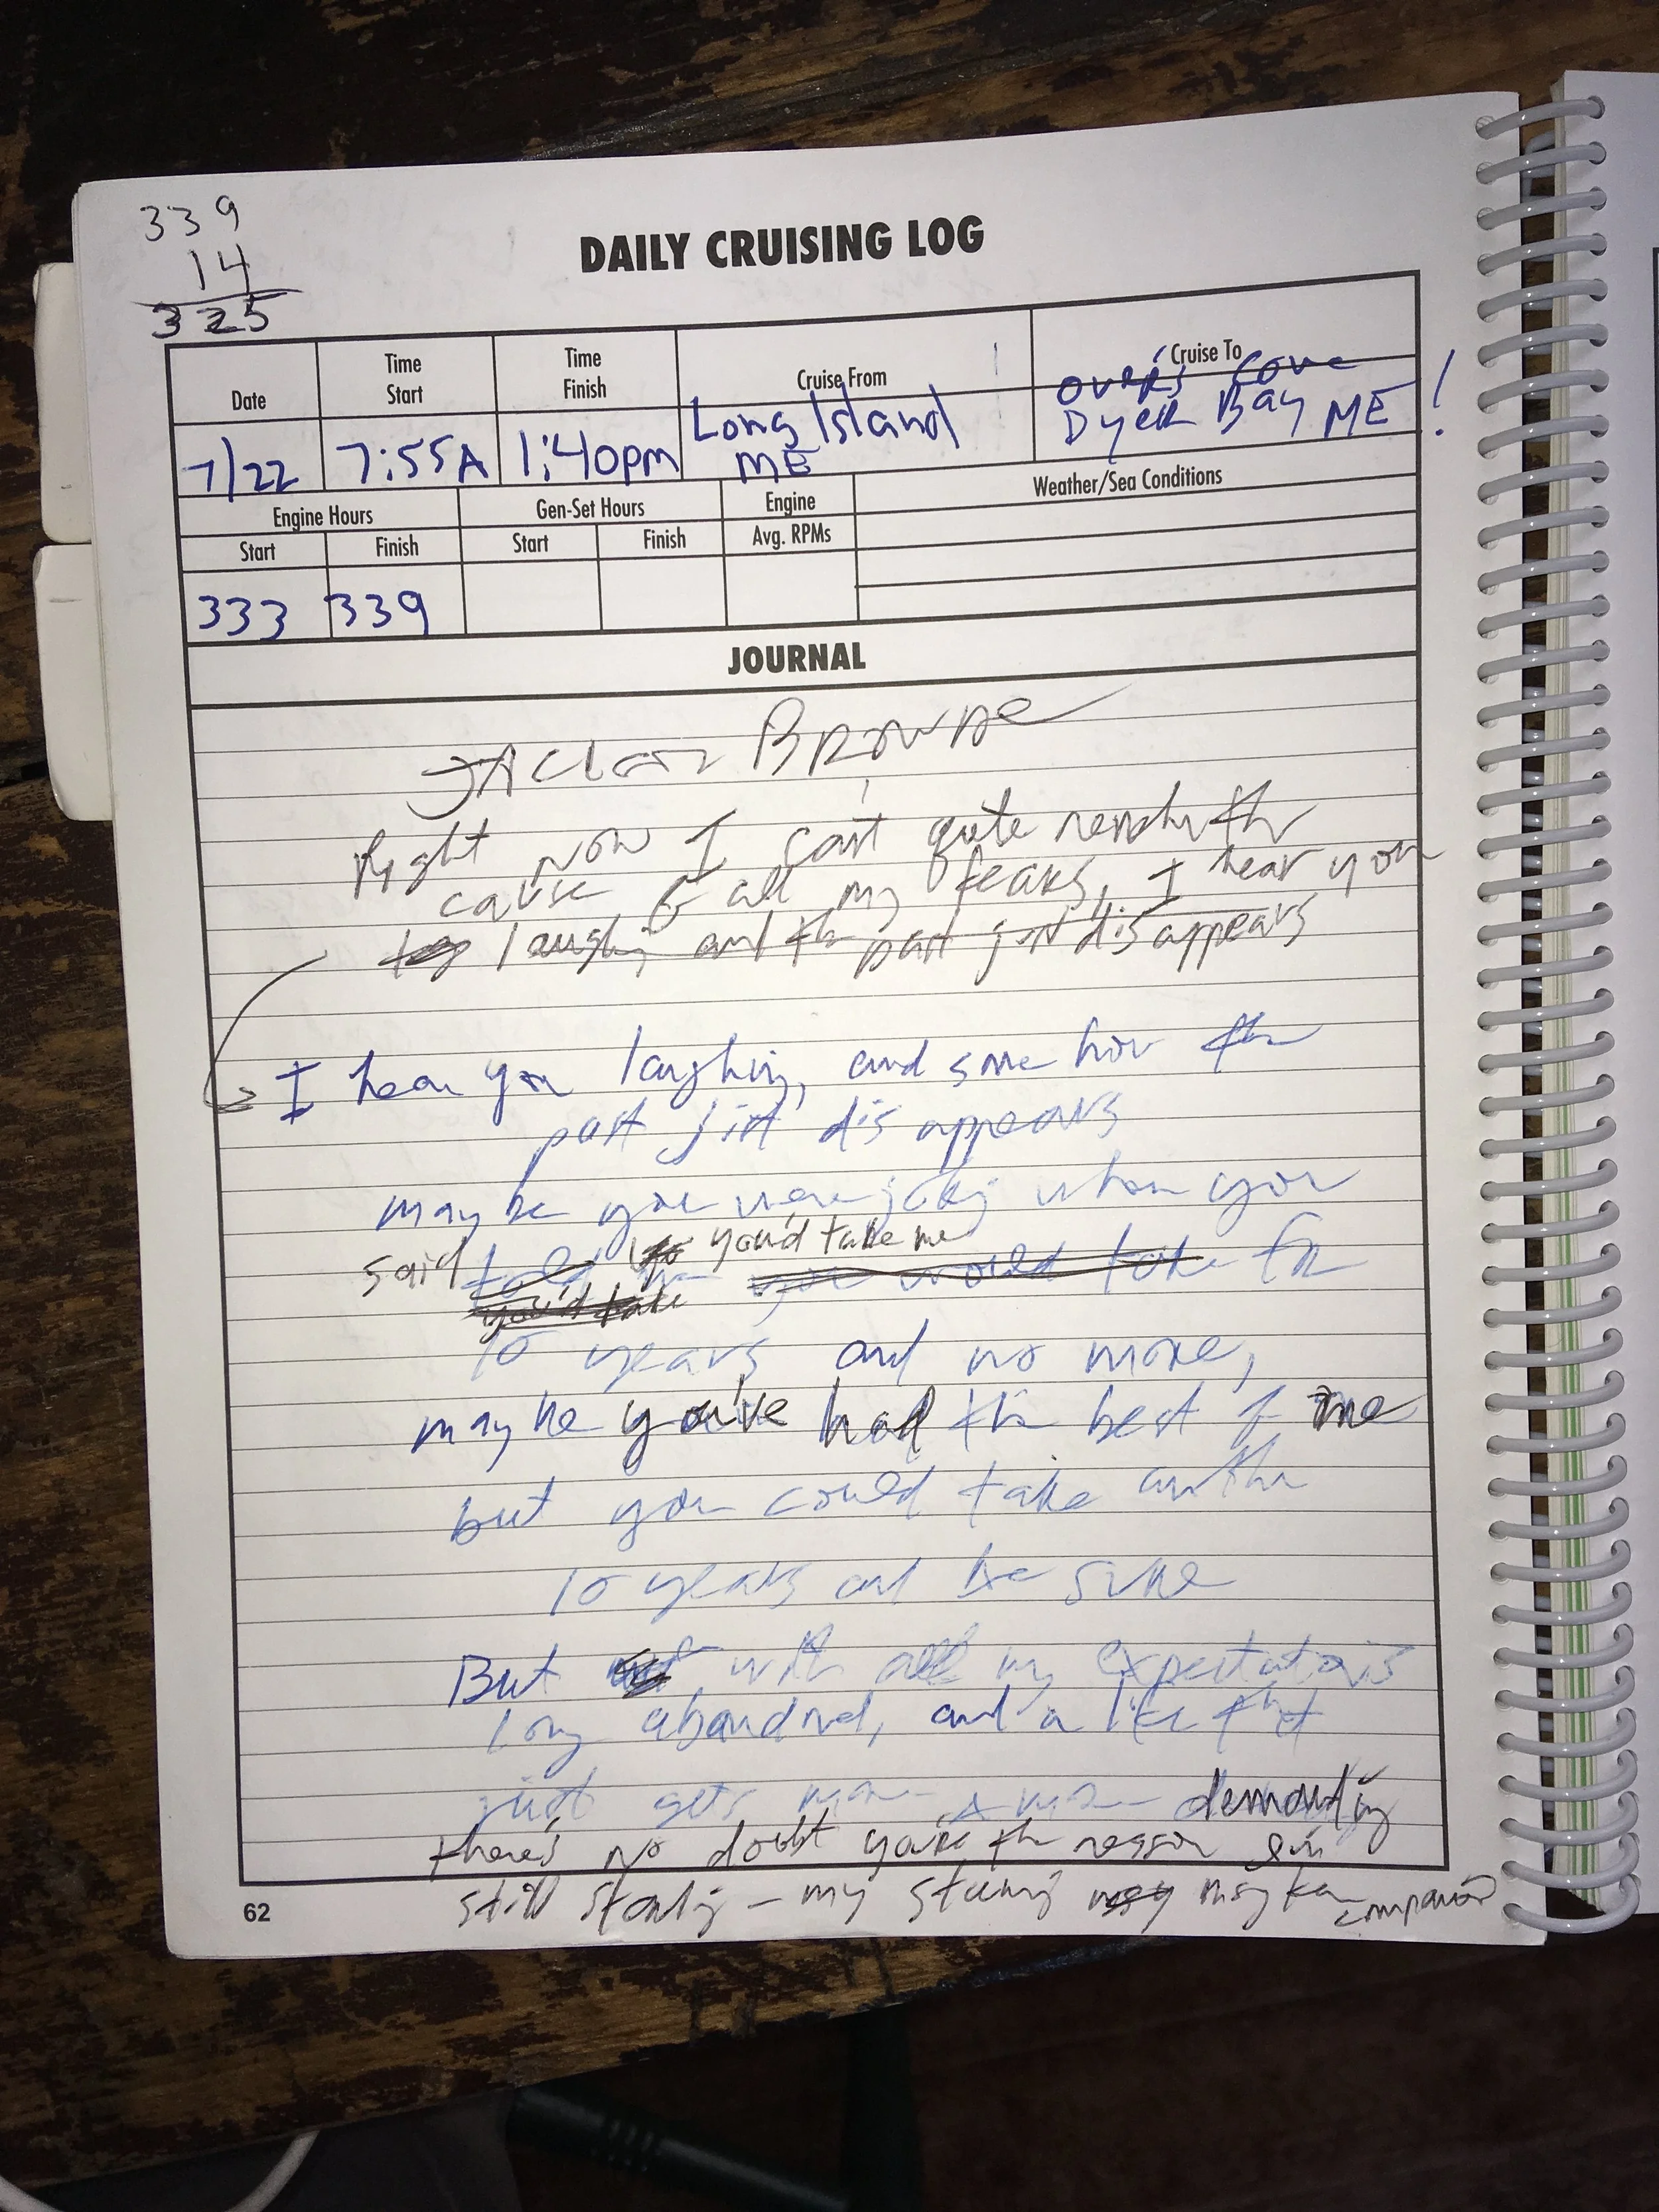 339
14
325
DAILY CRUISING LOG
Date
Time Start
Time Finish
Cruise From
Cruise To
7/22
7:55A
1:40pm
Long Island
ME
cove
Dyer Bay ME!
Engine Hours
Gen-Set Hours
Engine
Weather/Sea Conditions
Start
Finish
Start
Finish
Avg. RPMs
333
339
JOURNAL
Browne
Right now I can't quite
cause all my fears, I hear you
and the past just disappears
I hear you laughing, and some how the
past just disappears
maybe you were joking when you
said you'd take me
you would take for
you'd take
10 years and no more,
maybe you've had the best of me
but you could take another
10 years and be sure
But with all my expectations
long abandoned, and a life that
just gets more & more demanding
there's no doubt you're the reason I'm
still standing - my maybe companion
62